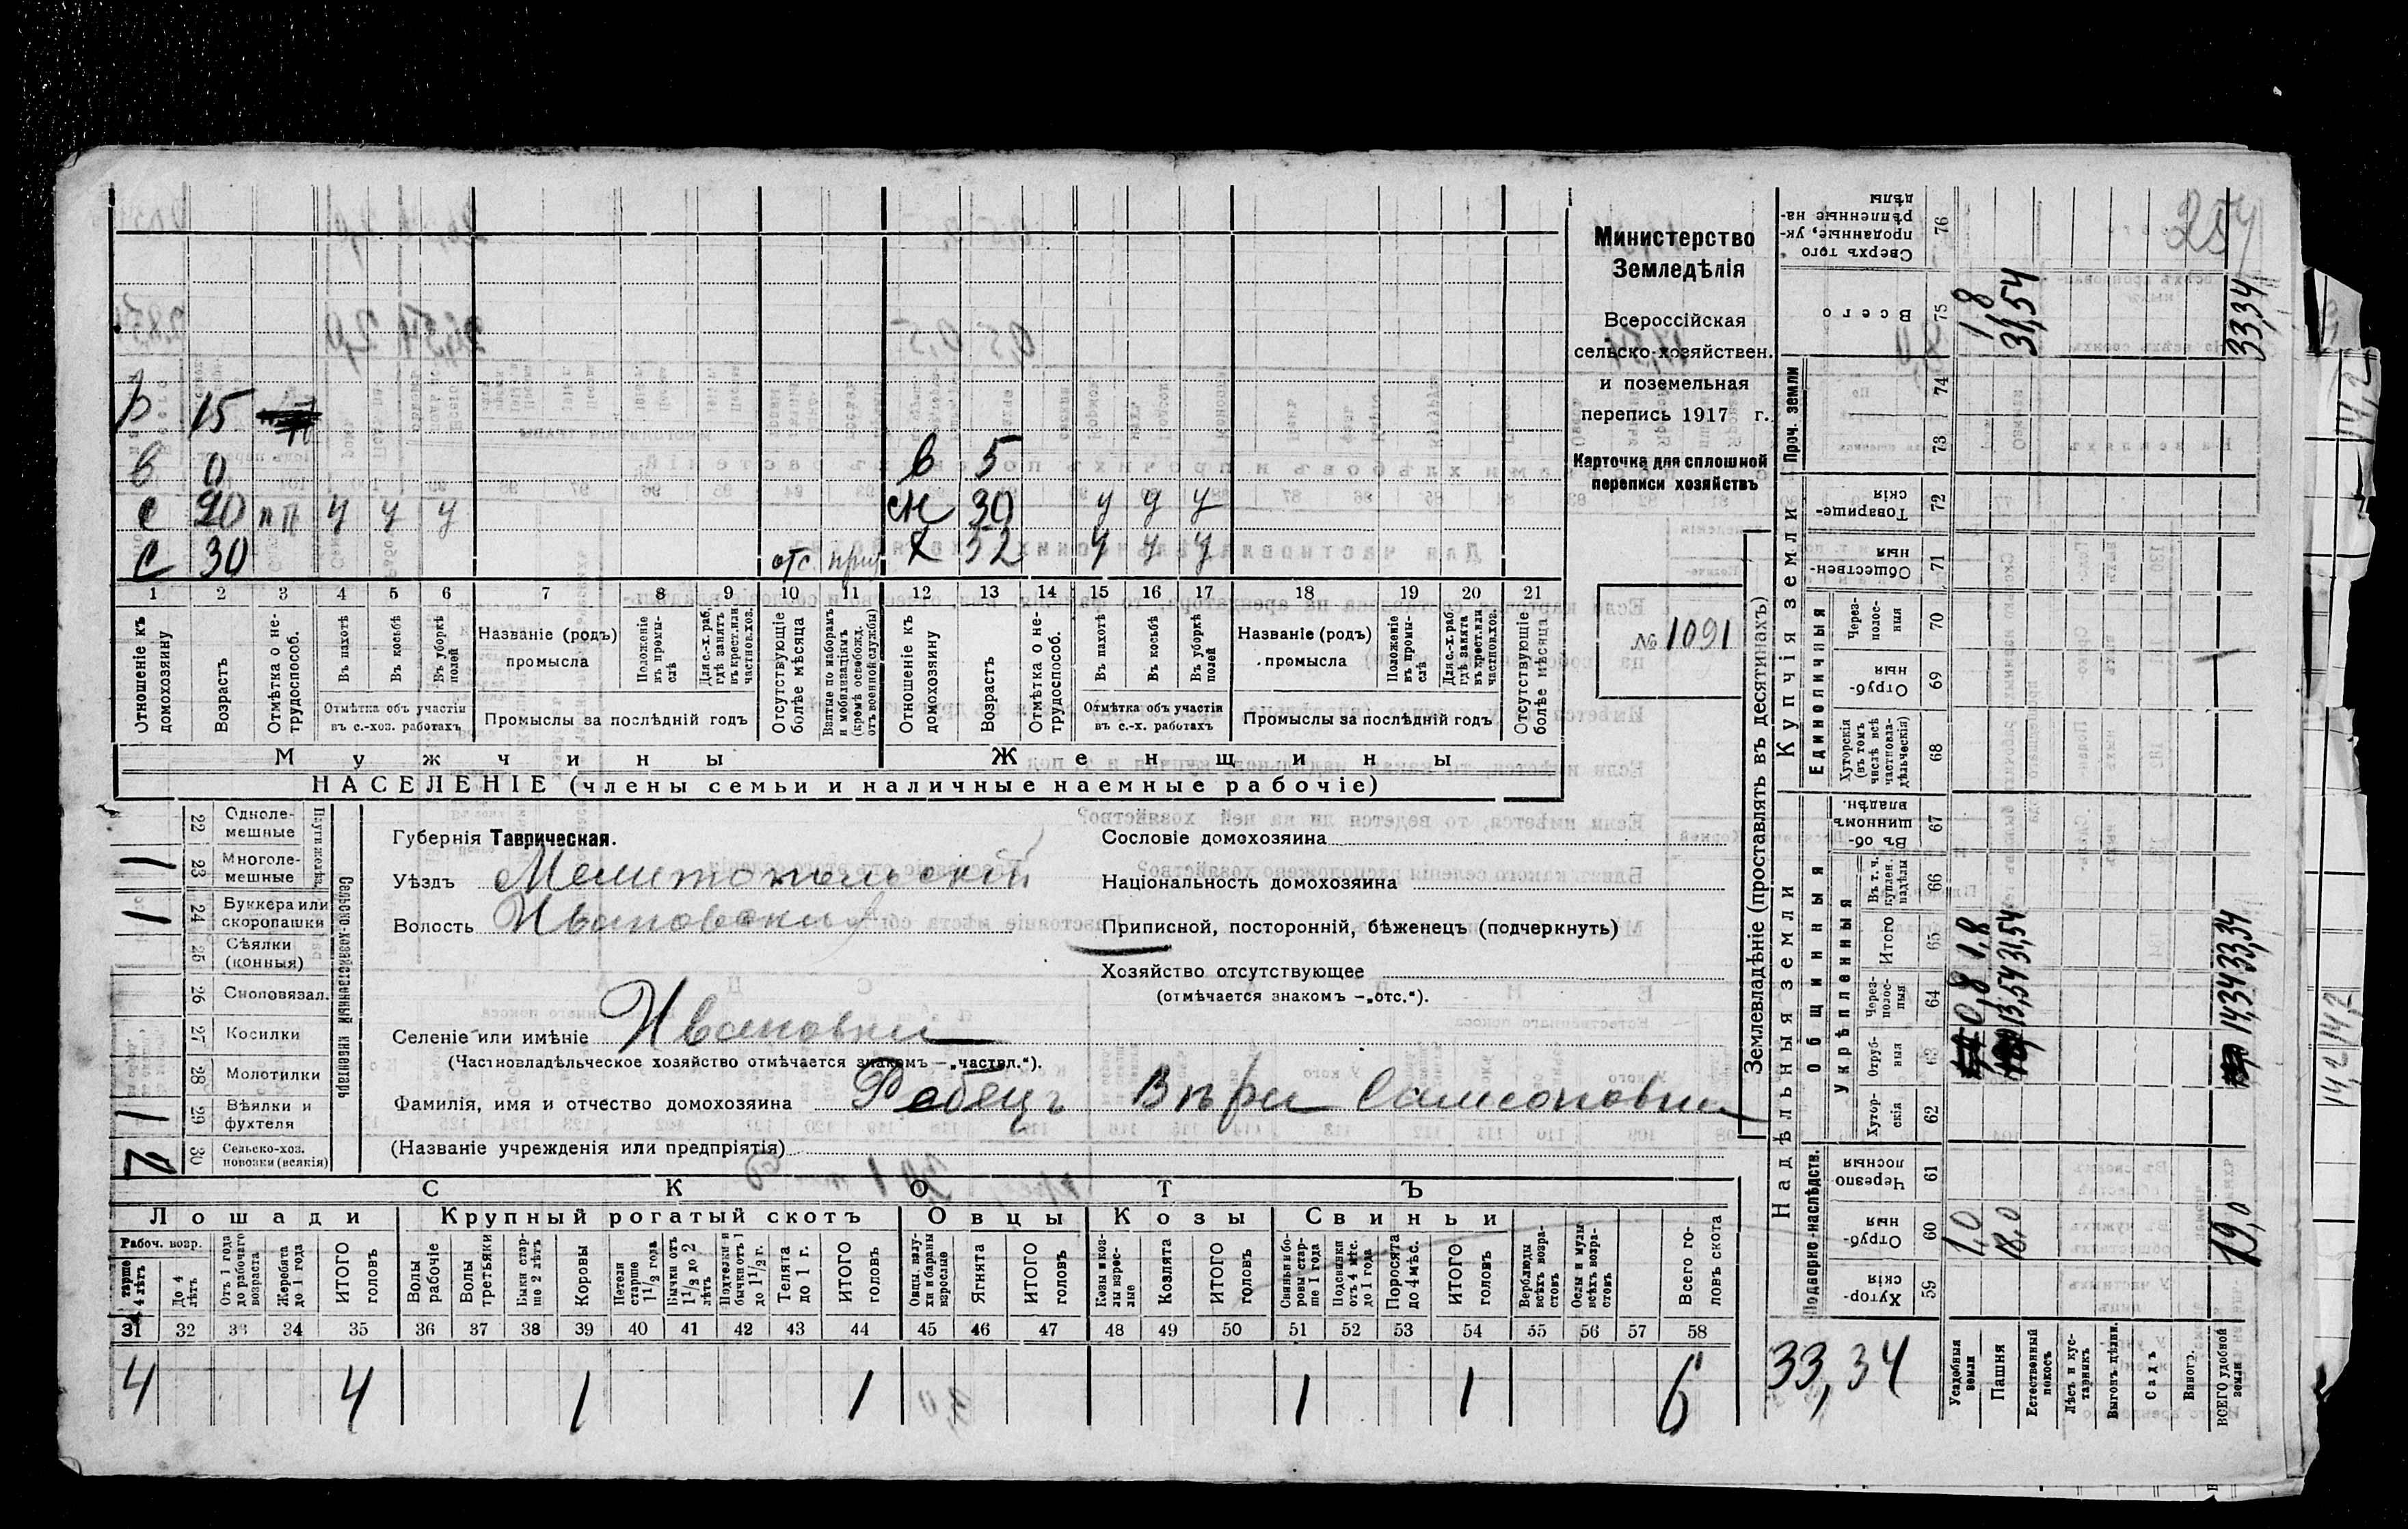 254
Министерство
Земледѣлія
Всероссійская
сельско-хозяйствен.
и поземельная
перепись 1917 г.
Карточка для сплошной
переписи хозяйствъ
№ 1091
р 15
в 0 в 5
с 20 пп у у у сн 30 у у у
с 30 отс. х 52 у у у
1 2 3 4 5 6 7 8 9 10 11 12 13 14 15 16 17 18 19 20 21
Отношеніе къ домохозяину
Возрастъ
Отмѣтка о нетрудоспособ.
Въ пахотѣ
Въ косьбѣ
Въ уборкѣ полей
Отмѣтка объ участіи въ с.-хоз. работахъ
Названіе (родъ) промысла
Положеніе въ промыслѣ
Для с.-х. раб. гдѣ занятъ въ крест. или частнов. хоз.
Промыслы за послѣдній годъ
Отсутствующіе болѣе мѣсяца
Взятые по наборамъ и мобилизаціямъ (кромѣ освобожд. отъ военной службы)
Отношеніе къ домохозяину
Возрастъ
Отмѣтка о нетрудоспособ.
Въ пахотѣ
Въ косьбѣ
Въ уборкѣ полей
Отмѣтка объ участіи въ с.-х. работахъ
Названіе (родъ) промысла
Положеніе въ промыслѣ
Для с.-х. раб. гдѣ занята въ крест. или частнов. хоз.
Промыслы за послѣдній годъ
Отсутствующіе болѣе мѣсяца
Мужчины Женщины
НАСЕЛЕНІЕ (члены семьи и наличные наемные рабочіе)
Сельско-хозяйственный инвентарь
22 Однолемешные
1 23 Многолемешные
1 24 Буккера или скоропашки
25 Сѣялки (конныя)
26 Сноповязал.
27 Косилки
28 Молотилки
1 29 Вѣялки и фухтеля
2 30 Сельско-хоз. повозки (всякія)
Губернія Таврическая.
Уѣздъ Мелитопольскій
Волость Ивановская
Селеніе или имѣніе Ивановка
(Частновладѣльческое хозяйство отмѣчается знакомъ — „частвл.“).
Фамилія, имя и отчество домохозяина Рабецъ Вѣра Самсоновна
(Названіе учрежденія или предпріятія)
Сословіе домохозяина
Національность домохозяина
Приписной, посторонній, бѣженецъ (подчеркнуть)
Хозяйство отсутствующее
(отмѣчается знакомъ — „отс.“).
СКОТЪ
Лошади Крупный рогатый скотъ Овцы Козы Свиньи
Рабоч. возр.
Старше 4 лѣтъ
До 4 лѣтъ
Отъ 1 года до рабочаго возраста
Жеребята до 1 года
ИТОГО головъ
Волы рабочіе
Волы третьяки
Быки старше 2 лѣтъ
Коровы
Нетели старше 1½ года
Бычки отъ 1½ до 2 лѣтъ
Подтелки и бычки отъ 1 до 1½ г.
Телята до 1 г.
ИТОГО головъ
Овцы, валухи и бараны взрослые
Ягнята
ИТОГО головъ
Козы и козлы взрослые
Козлята
ИТОГО головъ
Свиньи и боровы старше 1 года
Подсвинки отъ 4 мѣс. до 1 года
Поросята до 4 мѣс.
ИТОГО головъ
Верблюды всѣхъ возрастовъ
Ослы и мулы всѣхъ возрастовъ
Всего головъ скота
31 32 33 34 35 36 37 38 39 40 41 42 43 44 45 46 47 48 49 50 51 52 53 54 55 56 57 58
4 4 1 1 1 1 6
Землевладѣніе (проставлять въ десятинахъ)
Надѣльныя земли
Купчія земли
Проч. земли
Подворно-наслѣдств.
Общинныя
Укрѣпленныя
Единоличныя
Хуторскія 59
Отрубныя 60
Черезполосныя 61
Хуторскія 62
Отрубныя 63
Черезполосныя 64
Итого 65
Въ т. ч. куплен. надѣлы 66
Въ общинномъ владѣн. 67
Хуторскія (въ томъ числѣ всѣ частновладѣльческія) 68
Отрубныя 69
Черезполосныя 70
Общественныя 71
Товарищескія 72
73
74
Всего 75
Сверхъ того проданные, укрѣпленные надѣлы 76
Усадебныя земли 1,0 0,8 1,8 1,8
Пашня 18,0 13,54 31,54 31,54
Естественный покосъ
Лѣсъ и кустарникъ
Выгонъ цѣлин.
Садъ
Виногр.
ВСЕГО удобной земли 19,0 14,34 33,34 33,34
33,34
14,2
14,2 14,2